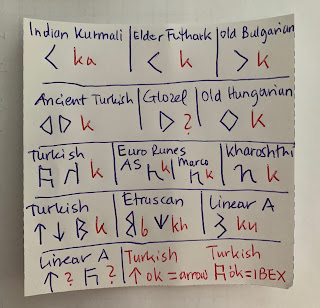 Indian Kurmali Elder Futhark Old Bulgarian
< ka < k > k
Ancient Turkish Glozel Old Hungarian
◁ ▷ k ▷ ? ◇ k
Turkish Euro Runes Kharoshthi
k AS k Marco k k
Turkish Etruscan Linear A
↑ ↓ k 8 6 ↓ kh ku
Linear A Turkish Turkish
↑ ? ? ↑ ok = arrow ök = IBEX